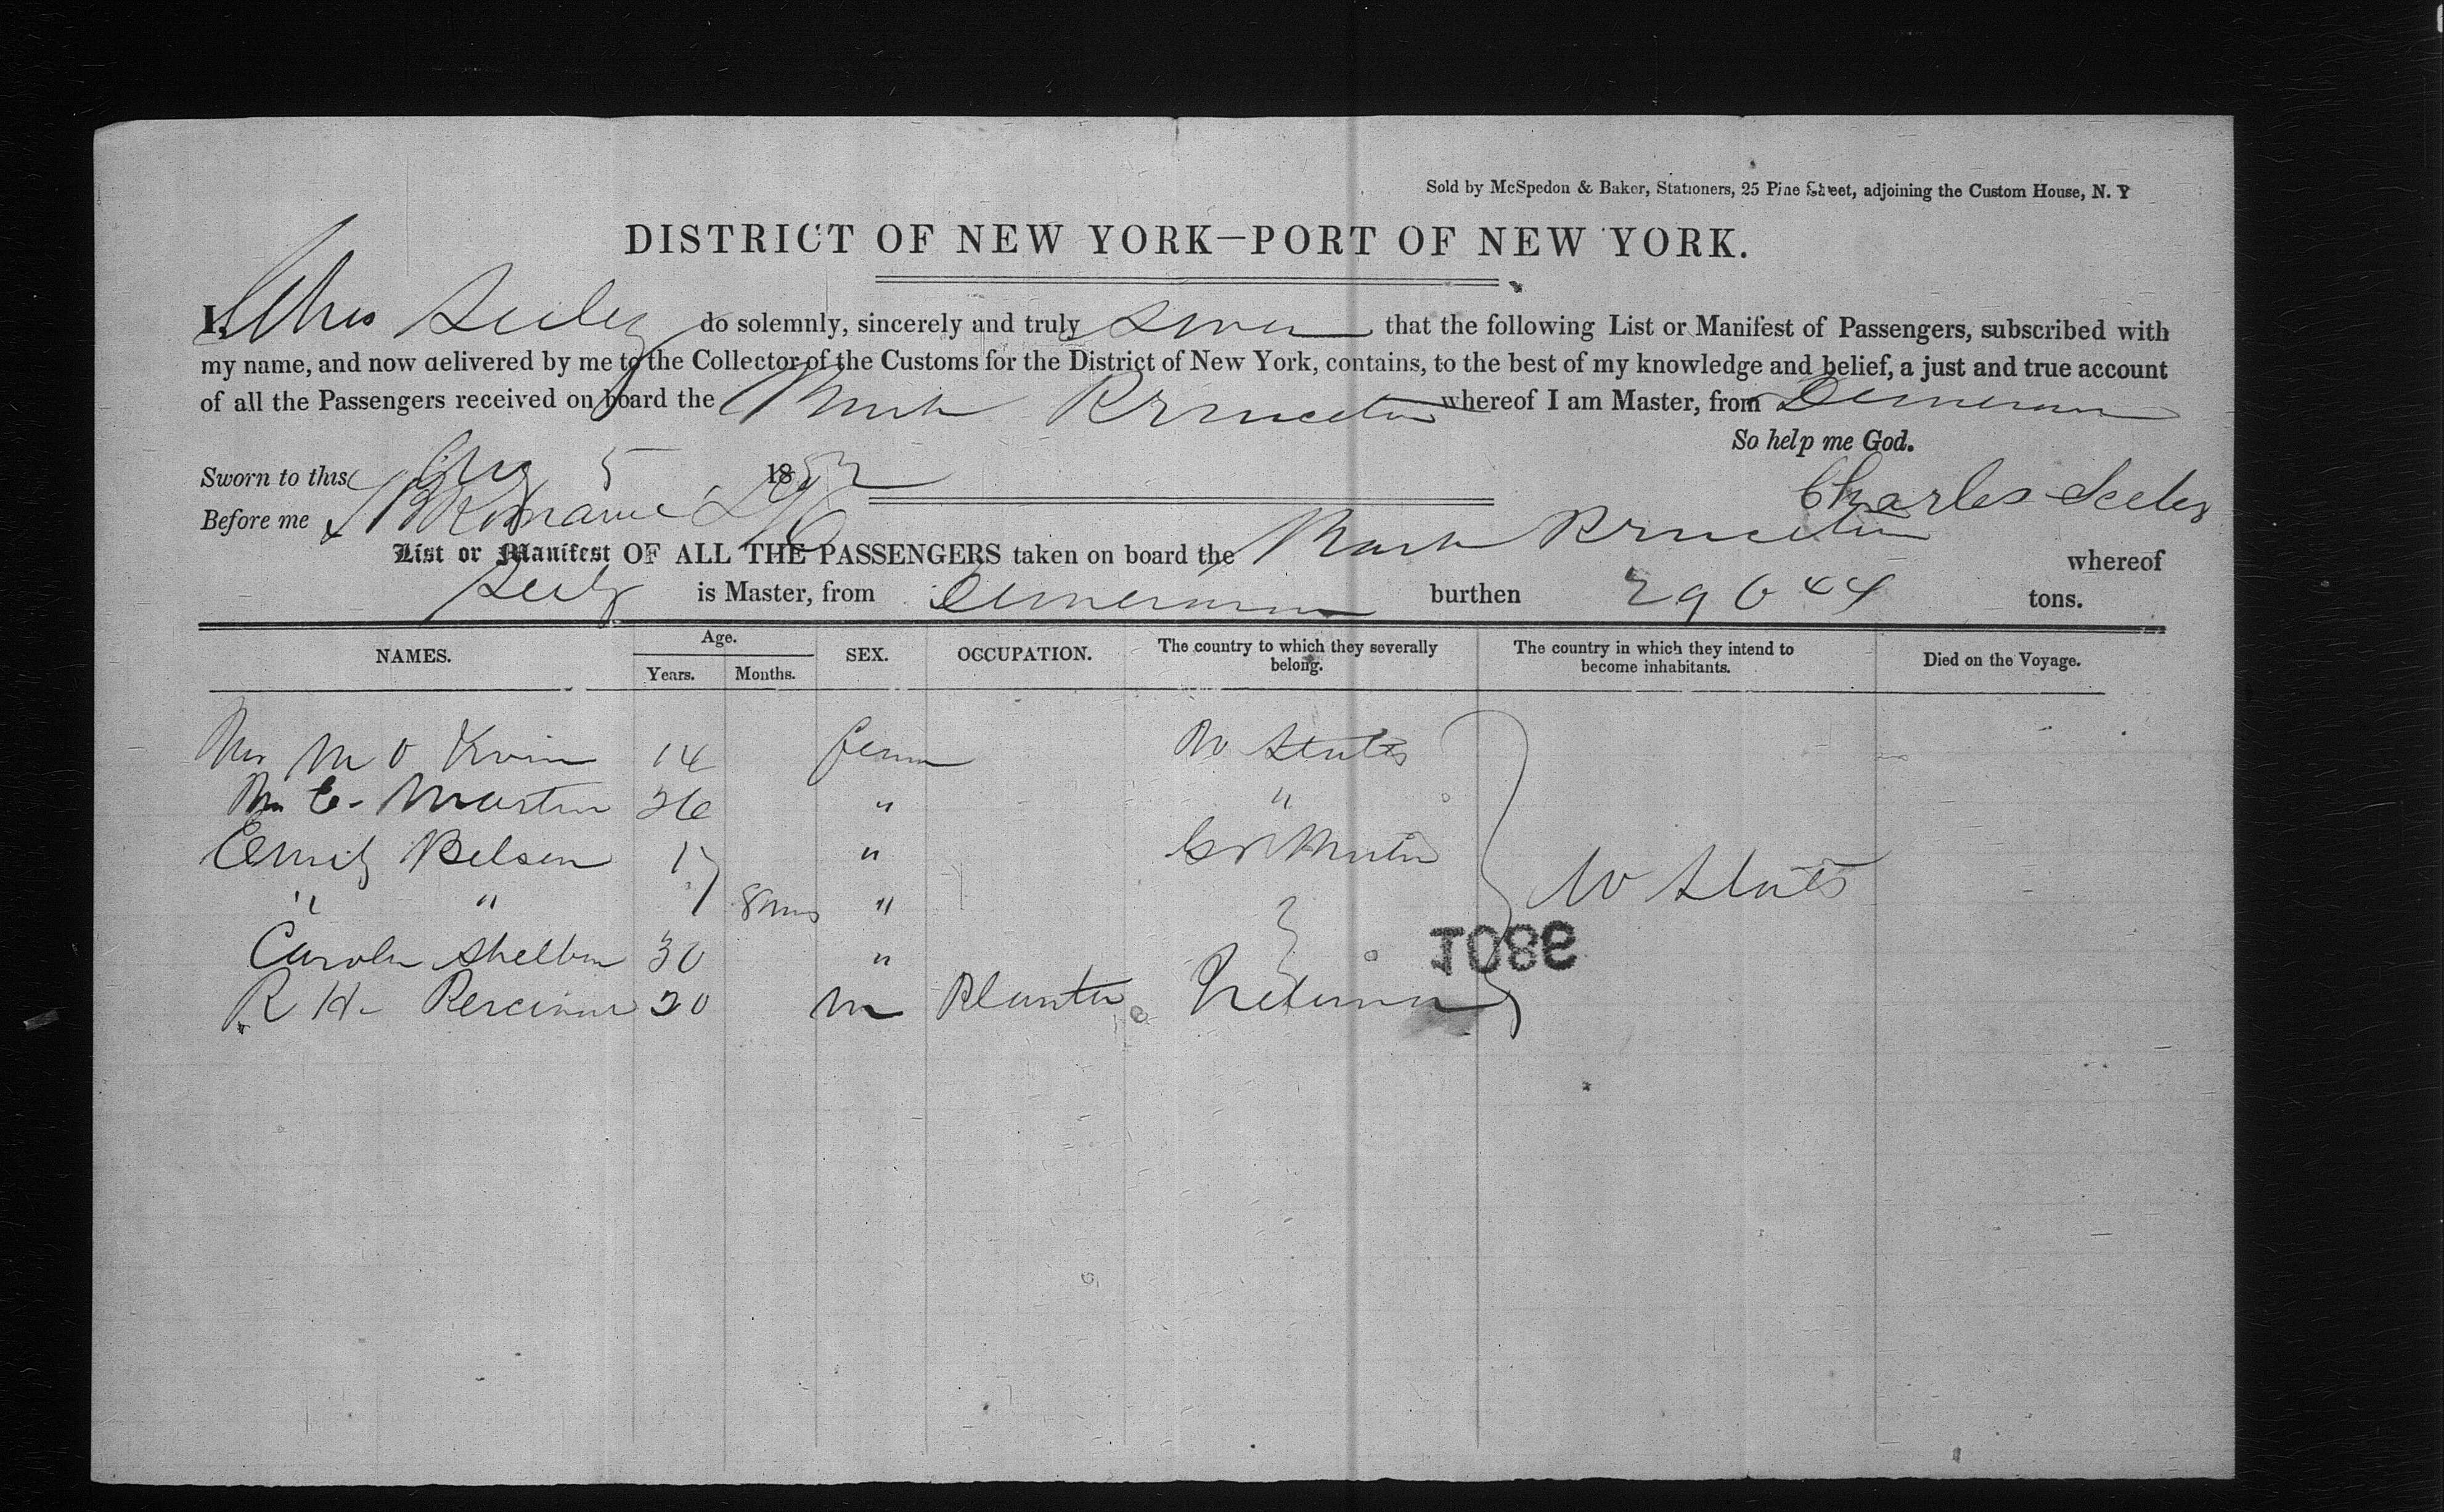 Sold by McSpedon & Baker, Stationers, 25 Pine Street, adjoining the Custom House, N. Y
DISTRICT OF NEW YORK—PORT OF NEW YORK.
I, Chas Seeley do solemnly, sincerely and truly swear that the following List or Manifest of Passengers, subscribed with
my name, and now delivered by me to the Collector of the Customs for the District of New York, contains, to the best of my knowledge and belief, a just and true account
of all the Passengers received on board the Bark Princeton whereof I am Master, from Demerara
So help me God.
Sworn to this Aug 5 1852
Before me
Charles Seeley
List or Manifest OF ALL THE PASSENGERS taken on board the Bark Princeton whereof
Seeley is Master, from Demerara burthen 296 44 tons.
NAMES. Age. SEX. OCCUPATION. The country to which they severally belong. The country in which they intend to become inhabitants. Died on the Voyage.
Years. Months.
M O 14 Fem U States
C. Martin 26 " "
Emily Belsen " Gr Britain
" " 8 mos " U States
Shelbn 30 "
R H 20 m Planter
1086